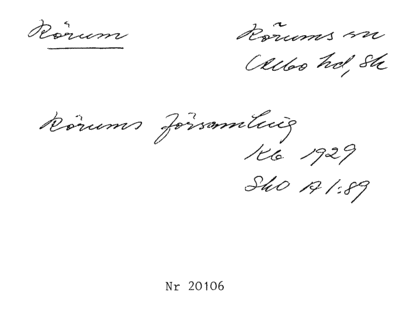 Rörum
Rörums sn
Albo hd, Sk
Rörums församling
Kb 1929
SkO A I:89
Nr 20106